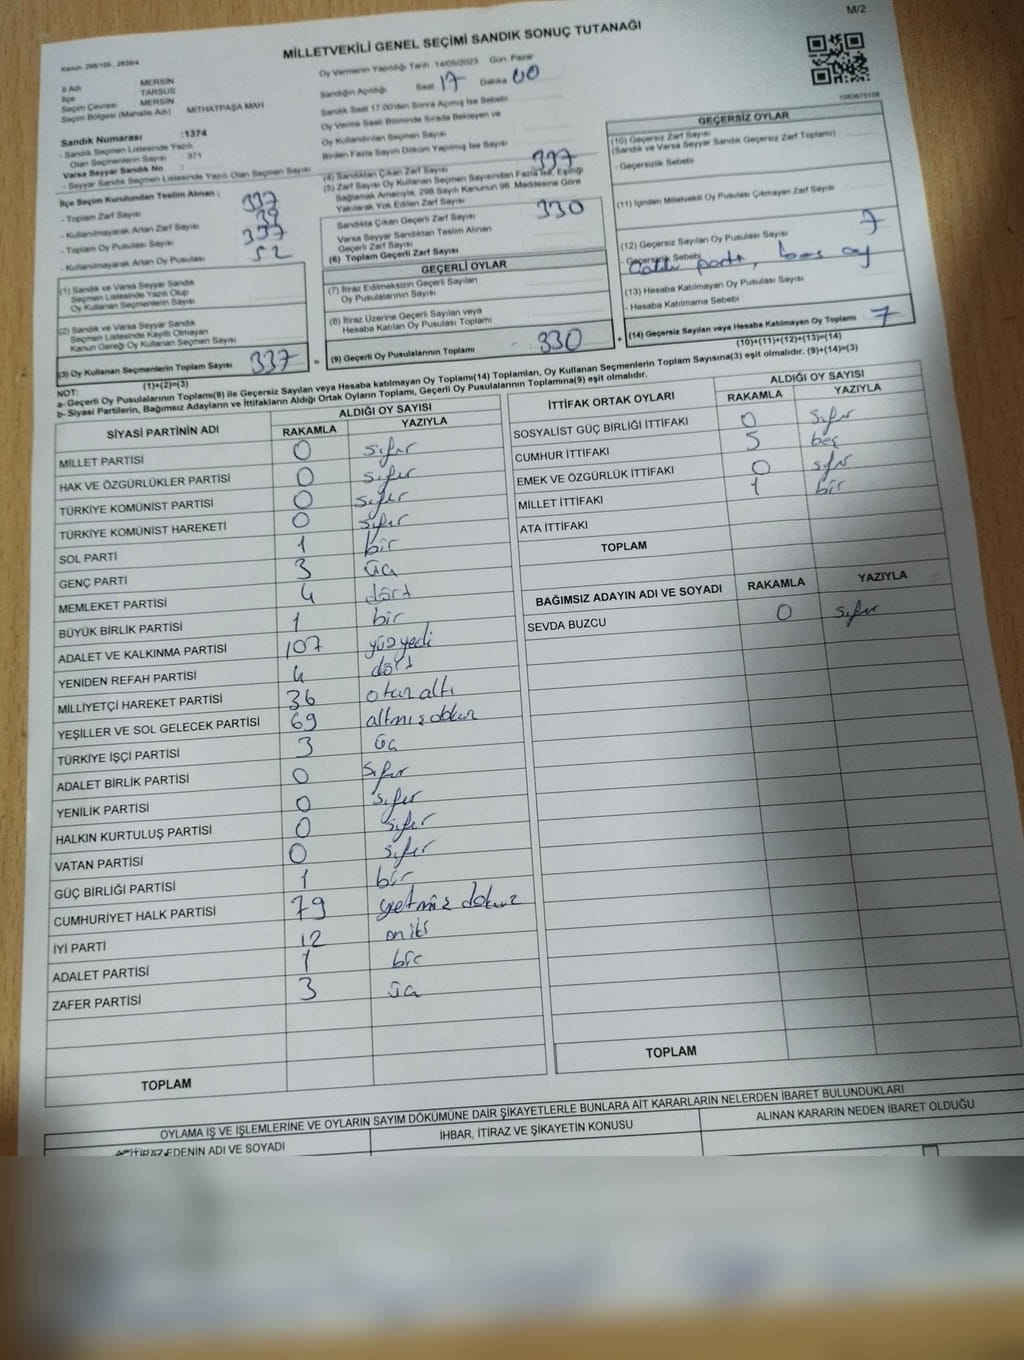 M/2
MİLLETVEKİLİ GENEL SEÇİMİ SANDIK SONUÇ TUTANAĞI
Kanun, 298/105 , 2839/4
İl Adı MERSİN
İlçe TARSUS
Seçim Çevresi MERSİN
Seçim Bölgesi (Mahalle Adı) MITHATPAŞA MAH
Sandık Numarası :1374
- Sandık Seçmen Listesinde Yazılı
Olan Seçmenlerin Sayısı : 371
Varsa Seyyar Sandık No :
- Seyyar Sandık Seçmen Listesinde Yazılı Olan Seçmen Sayısı
İlçe Seçim Kurulundan Teslim Alınan ;
- Toplam Zarf Sayısı
- Kullanılmayarak Artan Zarf Sayısı
- Toplam Oy Pusulası Sayısı
- Kullanılmayarak Artan Oy Pusulası 52
(1) Sandık ve Varsa Seyyar Sandık
Seçmen Listesinde Yazılı Olup
Oy Kullanan Seçmenlerin Sayısı
(2) Sandık ve Varsa Seyyar Sandık
Seçmen Listesinde Kayıtlı Olmayan
Kanun Gereği Oy Kullanan Seçmen Sayısı
(3) Oy Kullanan Seçmenlerin Toplam Sayısı 337
(1)+(2)=(3)
Oy Vermenin Yapıldığı Tarih :14/05/2023 Gün: Pazar
Sandığın Açıldığı Saat 17 Dakika 00
Sandık Saat 17:00'den Sonra Açılmış İse Sebebi
Oy Verme Saati Bitiminde Sırada Bekleyen ve
Oy Kullandırılan Seçmen Sayısı
Birden Fazla Sayım Döküm Yapılmış İse Sayısı
(4) Sandıktan Çıkan Zarf Sayısı 337
(5) Zarf Sayısı Oy Kullanan Seçmen Sayısından Fazla İse, Eşitliği
Sağlamak Amacıyla, 298 Sayılı Kanunun 98. Maddesine Göre
Yakılarak Yok Edilen Zarf Sayısı
Sandıkta Çıkan Geçerli Zarf Sayısı 330
Varsa Seyyar Sandıktan Teslim Alınan
Geçerli Zarf Sayısı
(6) Toplam Geçerli Zarf Sayısı
GEÇERLİ OYLAR
(7) İtiraz Edilmeksizin Geçerli Sayılan
Oy Pusulalarının Sayısı
(8) İtiraz Üzerine Geçerli Sayılan veya
Hesaba Katılan Oy Pusulası Toplamı
= (9) Geçerli Oy Pusulalarının Toplamı 330
1083673108
GEÇERSİZ OYLAR
(10) Geçersiz Zarf Sayısı
(Sandık ve Varsa Seyyar Sandık Geçersiz Zarf Toplamı)
- Geçersizlik Sebebi
(11) İçinden Milletvekili Oy Pusulası Çıkmayan Zarf Sayısı
(12) Geçersiz Sayılan Oy Pusulası Sayısı 7
- Geçersizlik Sebebi
parti, boş oy
(13) Hesaba Katılmayan Oy Pusulası Sayısı
- Hesaba Katılmama Sebebi
+ (14) Geçersiz Sayılan veya Hesaba Katılmayan Oy Toplamı 7
(10)+(11)+(12)+(13)=(14)
NOT:
a- Geçerli Oy Pusulalarının Toplamı(9) ile Geçersiz Sayılan veya Hesaba katılmayan Oy Toplamı(14) Toplamları, Oy Kullanan Seçmenlerin Toplam Sayısına(3) eşit olmalıdır. (9)+(14)=(3)
b- Siyasi Partilerin, Bağımsız Adayların ve İttifakların Aldığı Ortak Oyların Toplamı, Geçerli Oy Pusulalarının Toplamına(9) eşit olmalıdır.
SİYASİ PARTİNİN ADI
ALDIĞI OY SAYISI
RAKAMLA YAZIYLA
MİLLET PARTİSİ 0 sıfır
HAK VE ÖZGÜRLÜKLER PARTİSİ 0 sıfır
TÜRKİYE KOMÜNİST PARTİSİ 0 sıfır
TÜRKİYE KOMÜNİST HAREKETİ 0 sıfır
SOL PARTİ 1 bir
GENÇ PARTİ 3 üç
MEMLEKET PARTİSİ 4 dört
BÜYÜK BİRLİK PARTİSİ 1 bir
ADALET VE KALKINMA PARTİSİ 107 yüzyedi
YENİDEN REFAH PARTİSİ 4 dört
MİLLİYETÇİ HAREKET PARTİSİ 36 otuzaltı
YEŞİLLER VE SOL GELECEK PARTİSİ 69 altmışdokuz
TÜRKİYE İŞÇİ PARTİSİ 3 üç
ADALET BİRLİK PARTİSİ 0 sıfır
YENİLİK PARTİSİ 0 sıfır
HALKIN KURTULUŞ PARTİSİ 0 sıfır
VATAN PARTİSİ 0 sıfır
GÜÇ BİRLİĞİ PARTİSİ 1 bir
CUMHURİYET HALK PARTİSİ 79 yetmiş dokuz
İYİ PARTİ 12 oniki
ADALET PARTİSİ 1 bir
ZAFER PARTİSİ 3 üç
TOPLAM
İTTİFAK ORTAK OYLARI
ALDIĞI OY SAYISI
RAKAMLA YAZIYLA
SOSYALİST GÜÇ BİRLİĞİ İTTİFAKI 0 sıfır
CUMHUR İTTİFAKI 5 beş
EMEK VE ÖZGÜRLÜK İTTİFAKI 0 sıfır
MİLLET İTTİFAKI 1 bir
ATA İTTİFAKI
TOPLAM
BAĞIMSIZ ADAYIN ADI VE SOYADI RAKAMLA YAZIYLA
SEVDA BUZCU 0 sıfır
TOPLAM
OYLAMA İŞ VE İŞLEMLERİNE VE OYLARIN SAYIM DÖKÜMÜNE DAİR ŞİKAYETLERLE BUNLARA AİT KARARLARIN NELERDEN İBARET BULUNDUKLARI
İTİRAZ EDENİN ADI VE SOYADI
İHBAR, İTİRAZ VE ŞİKAYETİN KONUSU
ALINAN KARARIN NEDEN İBARET OLDUĞU